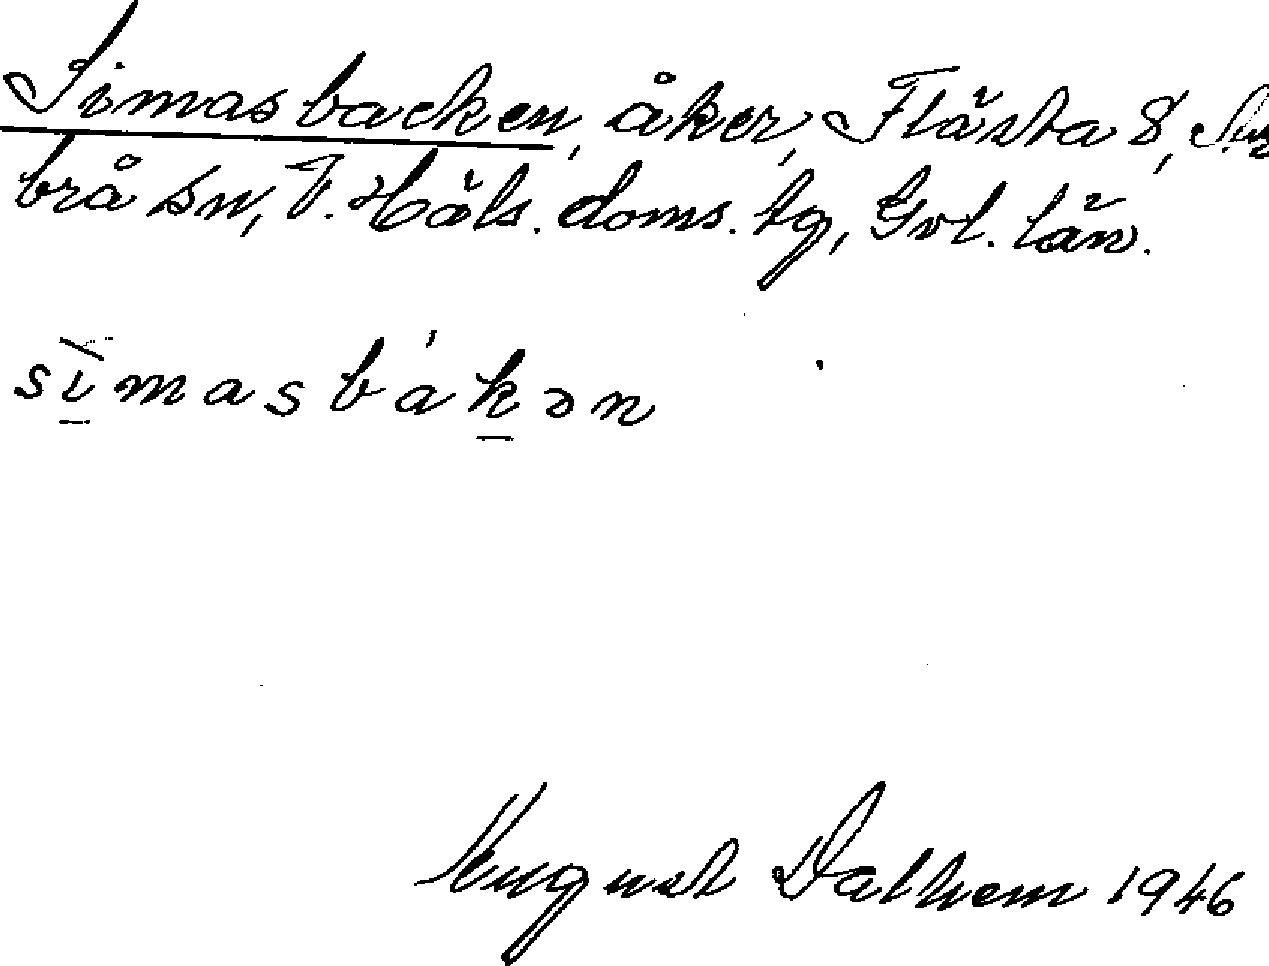 Simasbacken, åker, Flästa 8, Ar-
brå sn, V. Häls. doms. tg, Gvl. län.
sìmasbákən
August Dalhem 1946